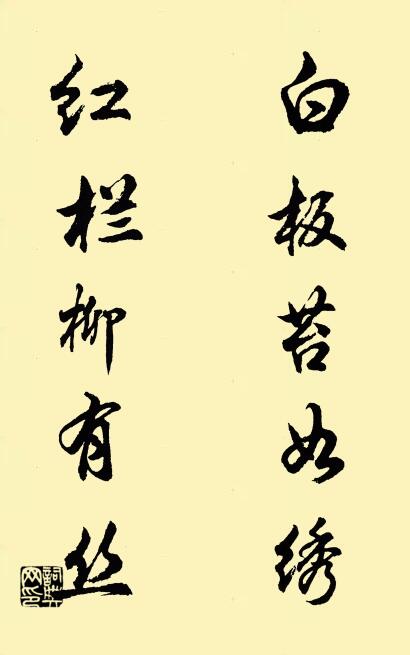 白板苔如绣
红栏柳有丝